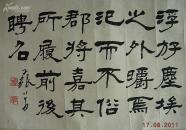 浮斿塵埃
之外嚼焉
氾而不俗
郡將嘉其
所履前後
聘名
17.08.2011